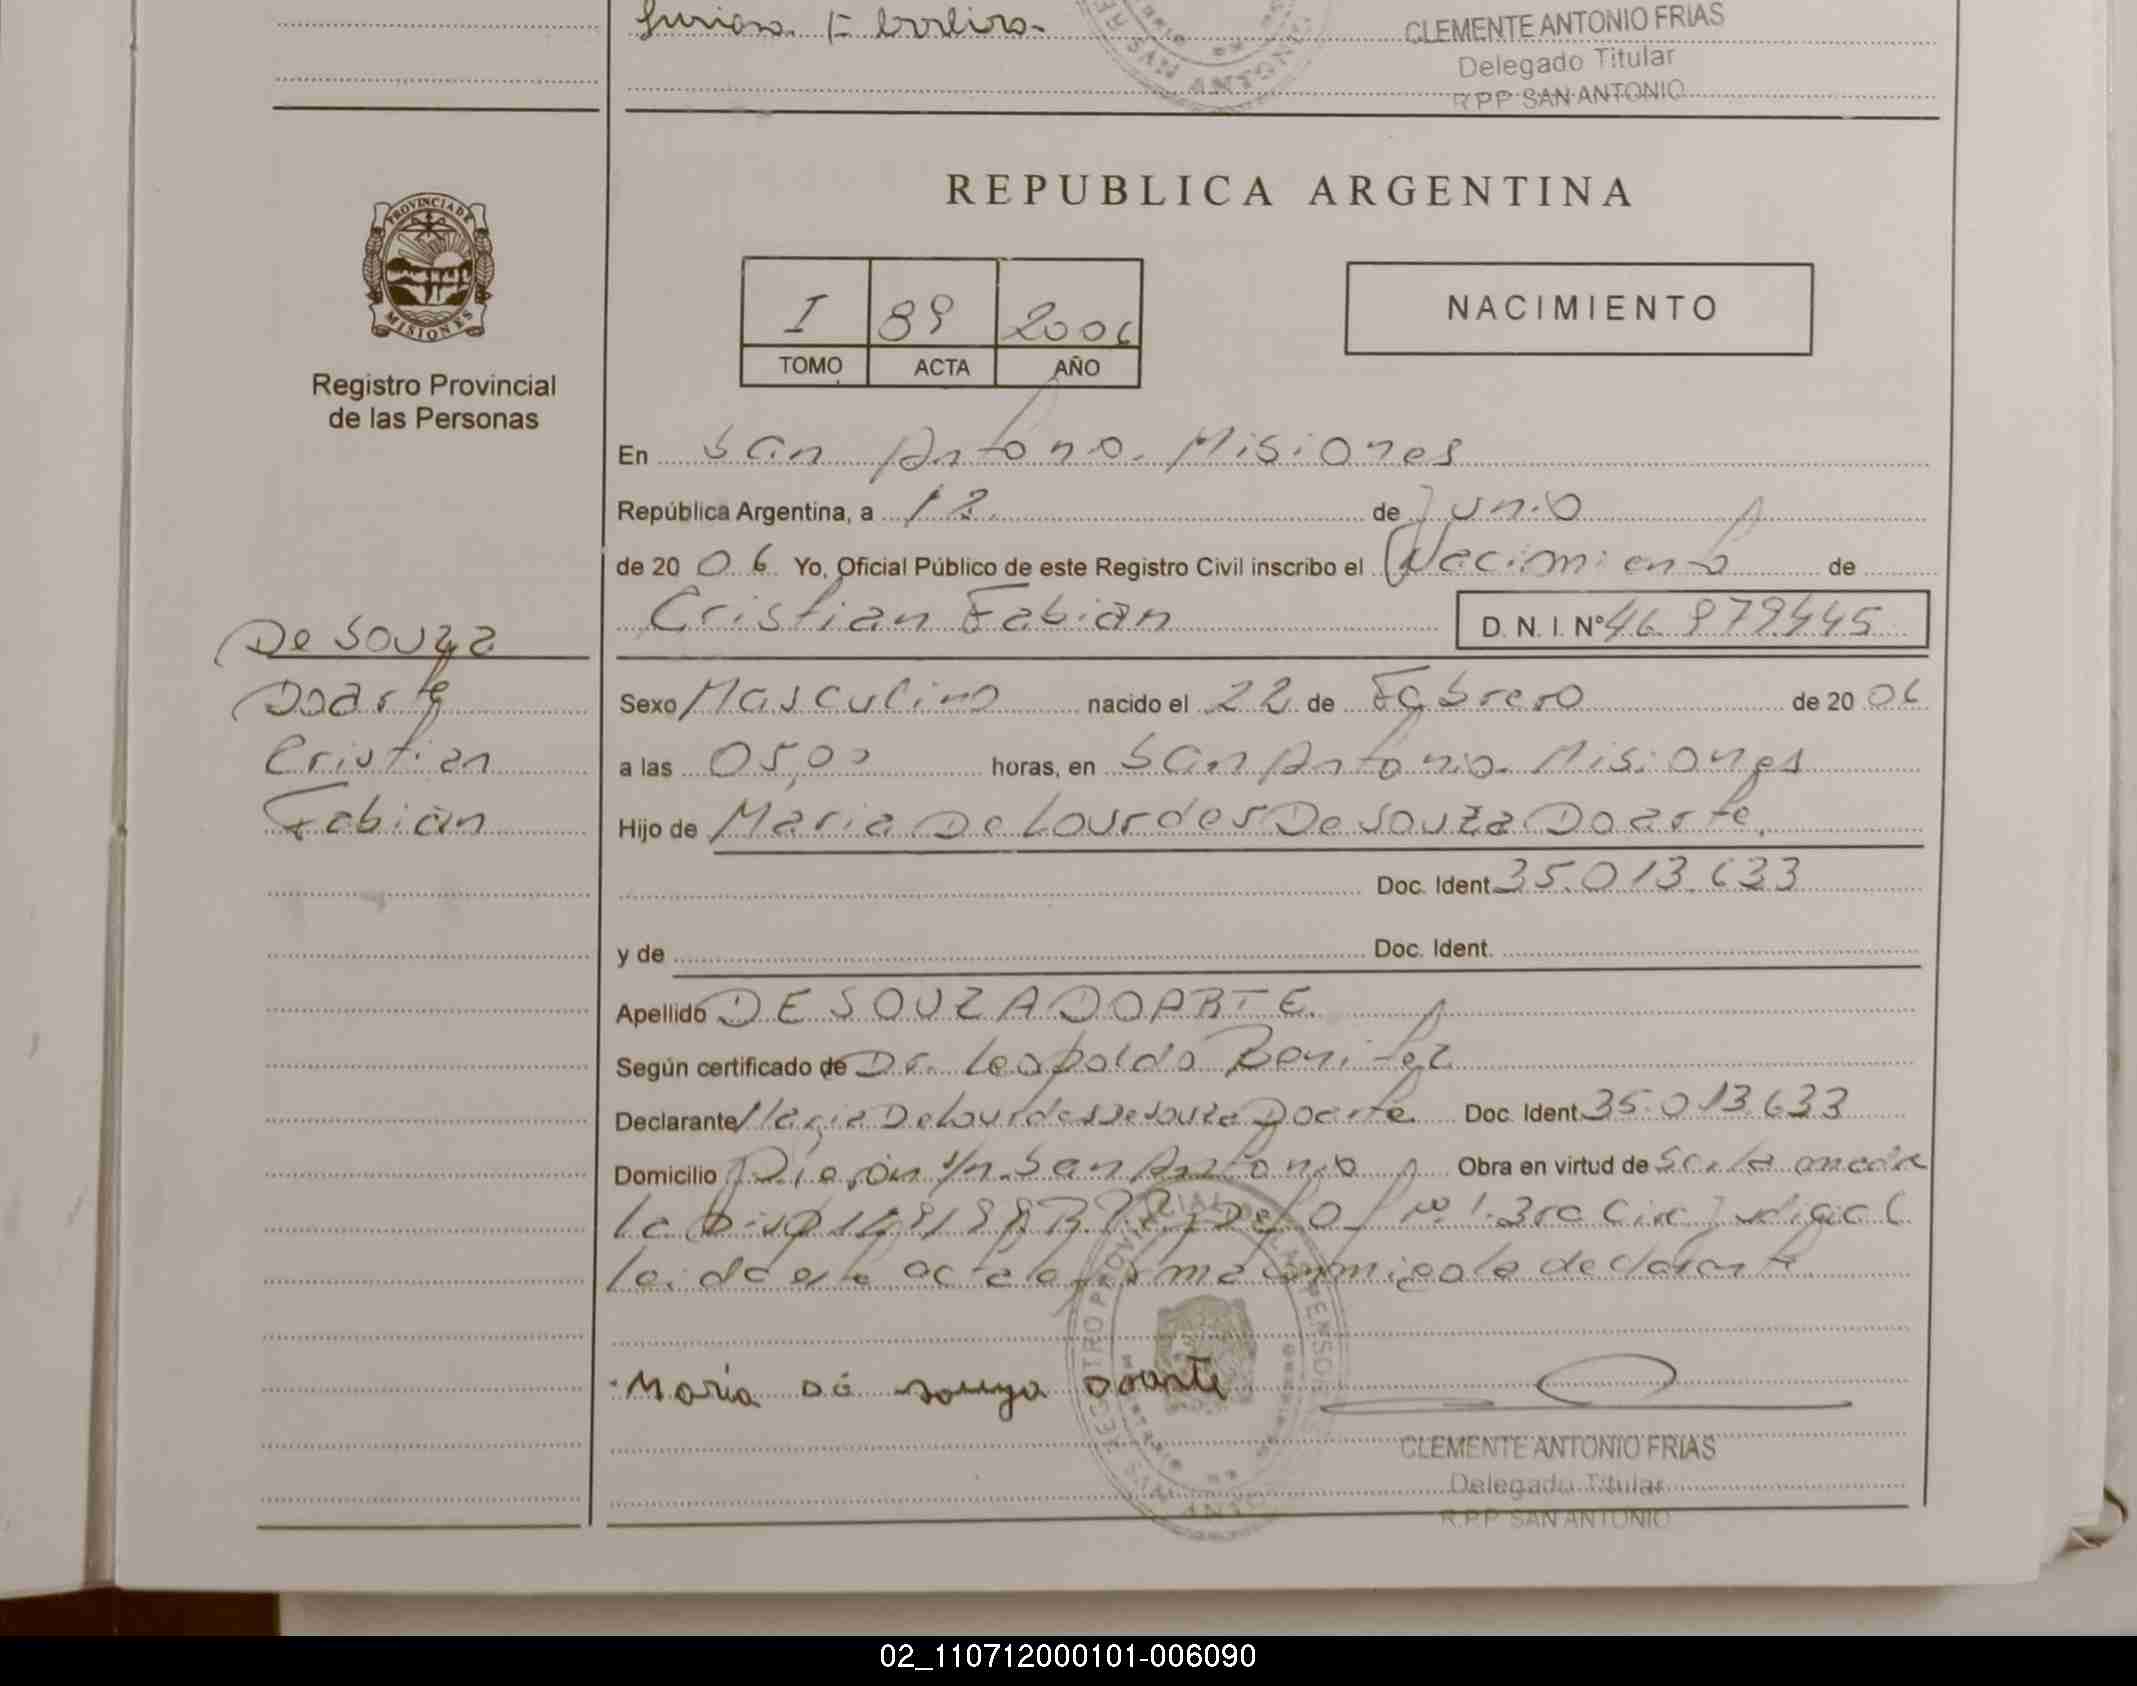 CLEMENTE ANTONIO FRIAS
Delegado Titular
R.P.P. SAN ANTONIO
PROVINCIA DE
MISIONES
Registro Provincial
de las Personas
REPUBLICA ARGENTINA
I 89 2006
TOMO ACTA AÑO
NACIMIENTO
En San Antonio. Misiones
República Argentina, a 12 de Junio
de 20 06 Yo, Oficial Público de este Registro Civil inscribo el Nacimiento de
Cristian Fabián D.N.I. Nº 46.879.445
De Souza
Doarte
Cristian
Fabián
Sexo Masculino nacido el 22 de Febrero de 20 06
a las 05,00 horas, en San Antonio. Misiones
Hijo de Maria De Lourdes De Souza Doarte.
Doc. Ident. 35.013.633
y de Doc. Ident.
Apellido DE SOUZA DOARTE.
Según certificado de Dr. Leopoldo Benitez
Declarante Maria De Lourdes De Souza Doarte. Doc. Ident. 35.013.633
Domicilio s/n. San Antonio Obra en virtud de
la 3ra Circ Judicial
leida este acta firma conmigo la declarante
Maria De Souza Doarte
CLEMENTE ANTONIO FRIAS
Delegado Titular
R.P.P. SAN ANTONIO
02_110712000101-006090